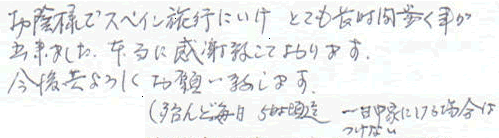 お陰様でスペイン旅行にいけ とても長時間歩く事が
出来ました。本当に感謝致しております。
今後共よろしくお願い致します。
(ほとんど毎日 5時頃迄 一日中家にいる場合は
つけない